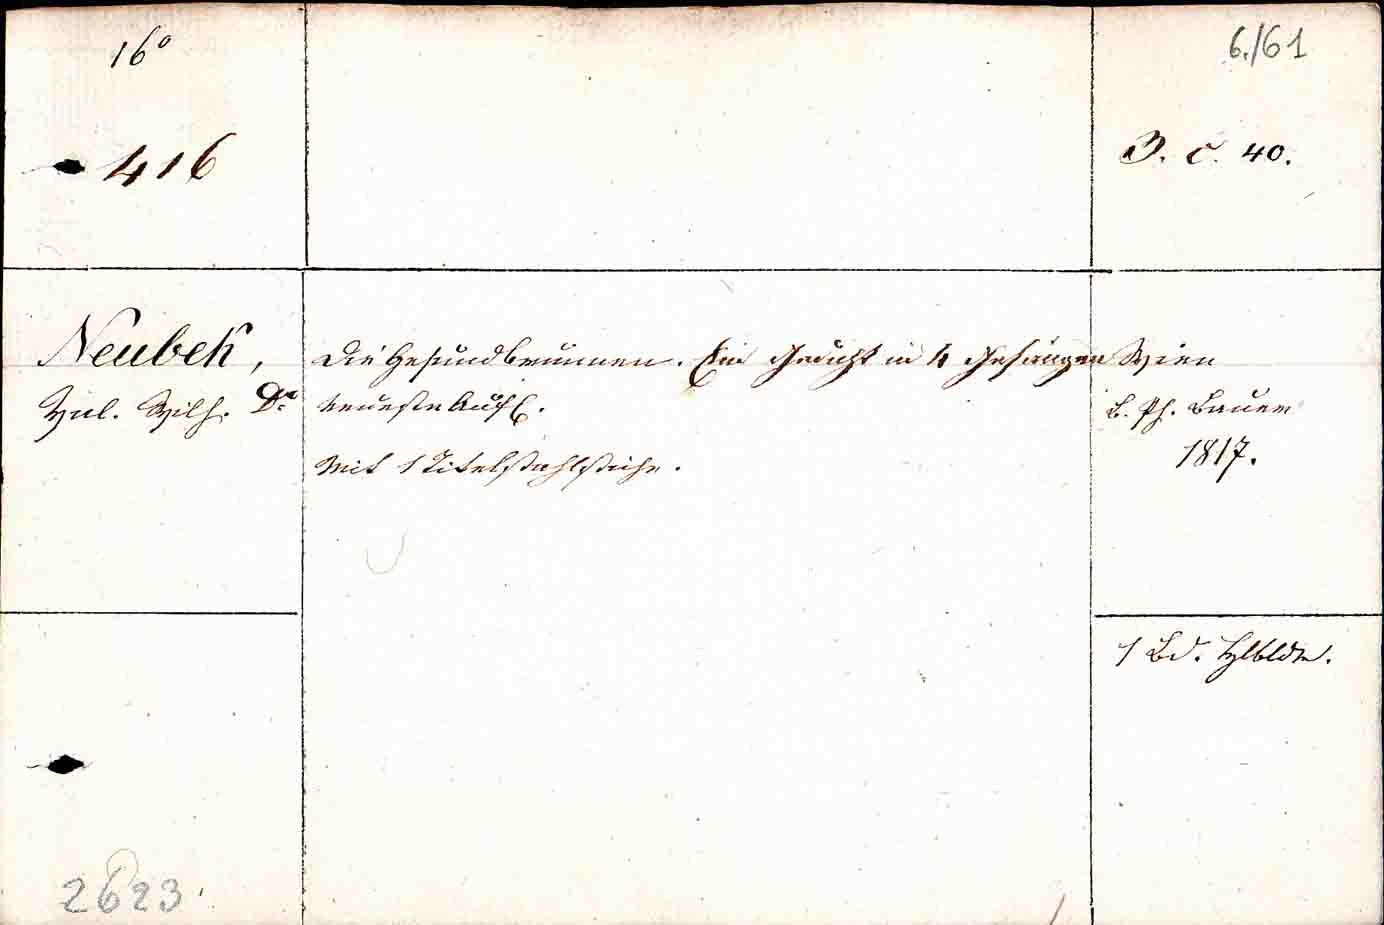 16°
6./61
416
J. c. 40.
Neubek,
Val. Wilh. Dr
Die Gesundbrunnen. Ein Gedicht in 4 Gesängen
neueste Aufl.
Mit 1 Titelstahlstiche.
Wien
B. Ph. Bauer
1817.
1 Bd. Hlbldr.
2623